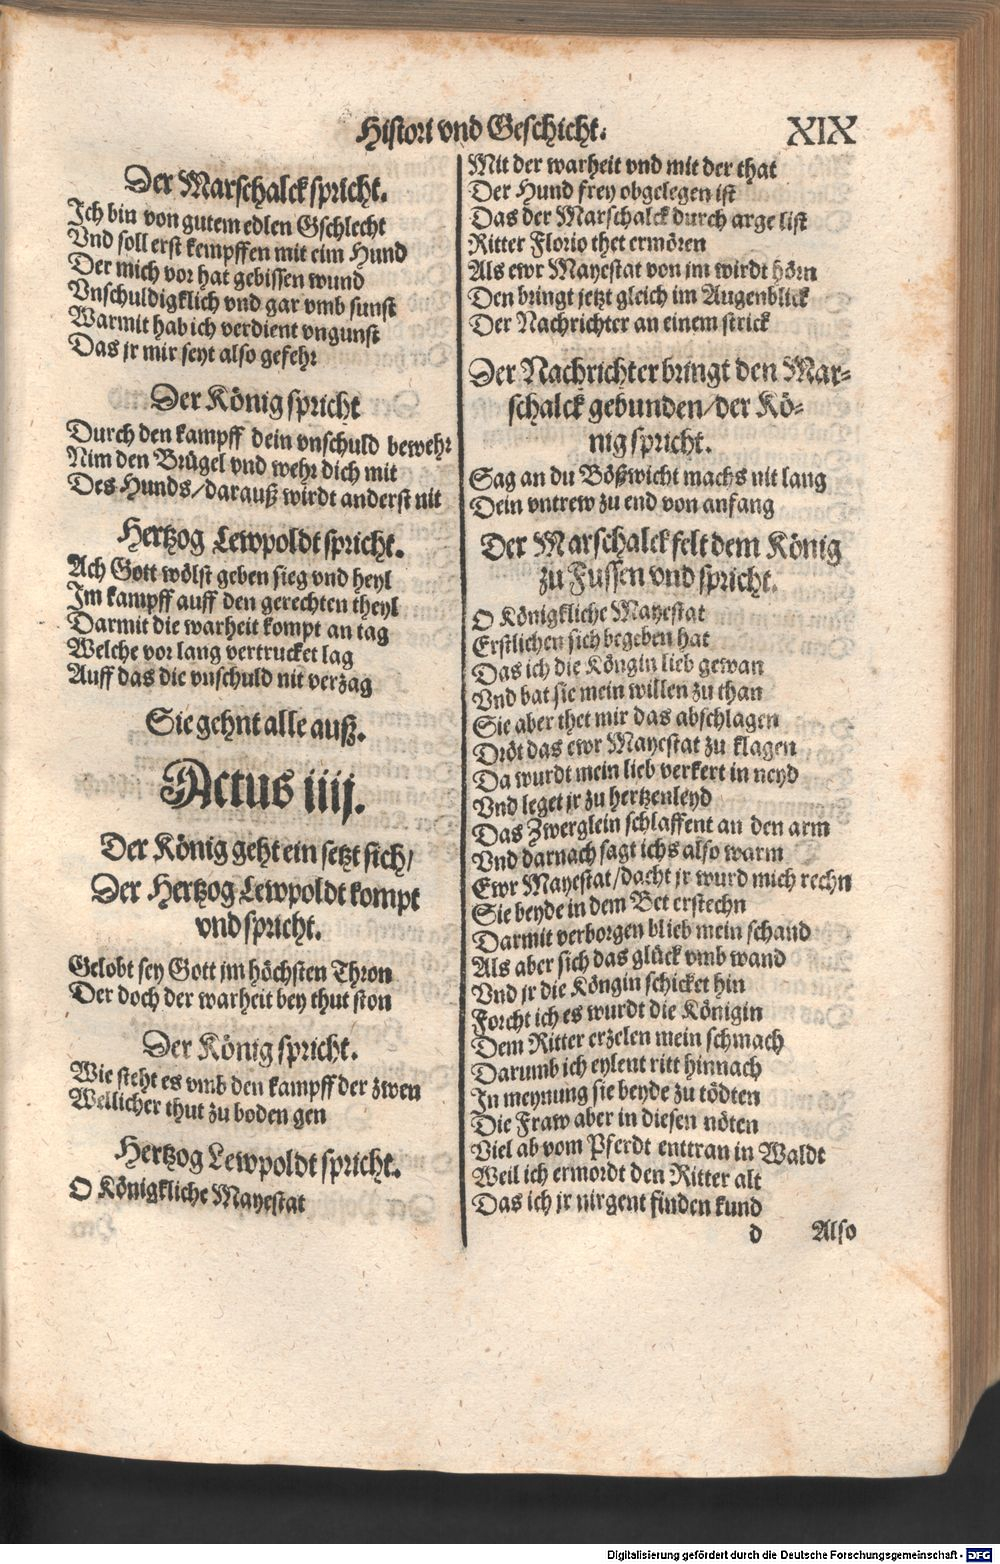 Histori vnd Geschicht.
XIX
Der Marschalck spricht.
Ich bin von gutem edlen Gschlecht
Vnd soll erst kempffen mit eim Hund
Der mich vor hat gebissen wund
Vnschuldigklich vnd gar vmb sunst
Warmit hab ich verdient vngunst
Das jr mir seyt also gefehr
Der König spricht
Durch den kampff dein vnschuld bewehr
Nim den Brügel vnd wehr dich mit
Des Hunds/darauß wirdt anderst nit
Hertzog Lewpoldt spricht.
Ach Gott wölst geben sieg vnd heyl
Im kampff auff den gerechten theyl
Darmit die warheit kompt an tag
Welche vor lang vertrucket lag
Auff das die vnschuld nit verzag
Sie gehnt alle auß.
Actus iiij.
Der König geht ein setzt sich/
Der Hertzog Lewpoldt kompt
vnd spricht.
Gelobt sey Gott jm höchsten Thron
Der doch der warheit bey thut ston
Der König spricht.
Wie steht es vmb den kampff der zwen
Wellicher thut zu boden gen
Hertzog Lewpoldt spricht.
O Königkliche Mayestat
Mit der warheit vnd mit der that
Der Hund frey obgelegen ist
Das der Marschalck durch arge list
Ritter Florio thet ermören
Als ewr Mayestat von jm wirdt hörn
Den bringt jetzt gleich im Augenblick
Der Nachrichter an einem strick
Der Nachrichter bringt den Mar-
schalck gebunden/der Kö-
nig spricht.
Sag an du Bößwicht machs nit lang
Dein vntrew zu end von anfang
Der Marschalck felt dem König
zu Fussen vnd spricht.
O Königkliche Mayestat
Erstlichen sich begeben hat
Das ich die Köngin lieb gewan
Vnd bat sie mein willen zu than
Sie aber thet mir das abschlagen
Dröt das ewr Mayestat zu klagen
Da wurdt mein lieb verkert in neyd
Vnd leget jr zu hertzenleyd
Das Zwerglein schlaffent an den arm
Vnd darnach sagt ichs also warm
Ewr Mayestat/dacht jr wurd mich rechn
Sie beyde in dem Bet erstechn
Darmit verborgen blieb mein schand
Als aber sich das glück vmb wand
Vnd jr die Köngin schicket hin
Forcht ich es wurdt die Königin
Dem Ritter erzelen mein schmach
Darumb ich eylent ritt hinnach
In meynung sie beyde zu tödten
Die Fraw aber in diesen nöten
Viel ab vom Pferdt enttran in Waldt
Weil ich ermordt den Ritter alt
Das ich jr nirgent finden kund
d Also
Digitalisierung gefördert durch die Deutsche Forschungsgemeinschaft - DFG